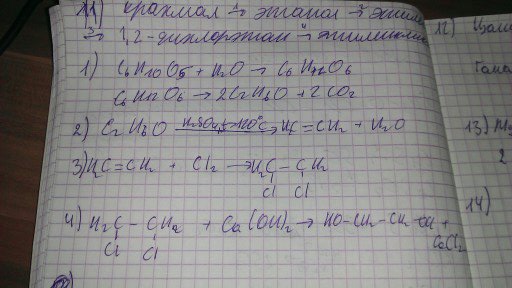 11) крахмал 1→ этанол 2→ этилен
3→ 1,2-дихлорэтан 4→ этиленгликоль
1) C6H10O5 + H2O → C6H12O6
C6H12O6 → 2C2H6O + 2CO2
2) C2H6O H2SO4, t>140°C → H2C=CH2 + H2O
3) H2C=CH2 + Cl2 → H2C-CH2
Cl Cl
4) H2C-CH2 + Ca(OH)2 → HO-CH2-CH2-OH +
Cl Cl CaCl2
12)
13)
2
14)